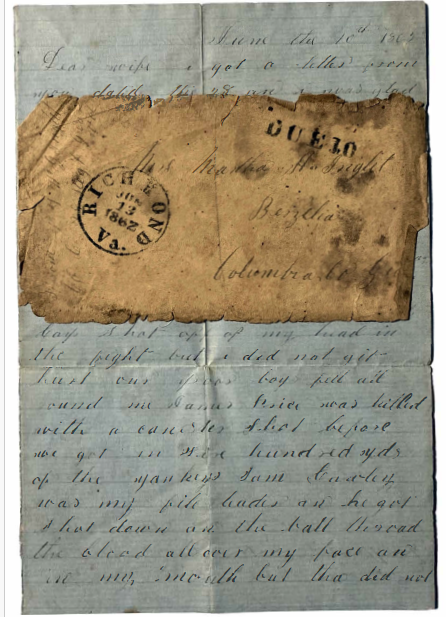 June the 10th 1862
Dear wife i got a letter from
you dated the 28 an i was glad
DUE 10
Mrs Martha
Berzelia
Columbia Co
RICHMOND
Va.
JUN
13
1862
Cap shot off of my head in
the fight but i did not git
hurt our poor boy fell all
round me James Price was killed
with a canester shot before
we got in five hundred yds
of the yankees Sam
was my file leader an he got
shot down an the ball throad
the blood all over my face an
in my mouth but tha did not